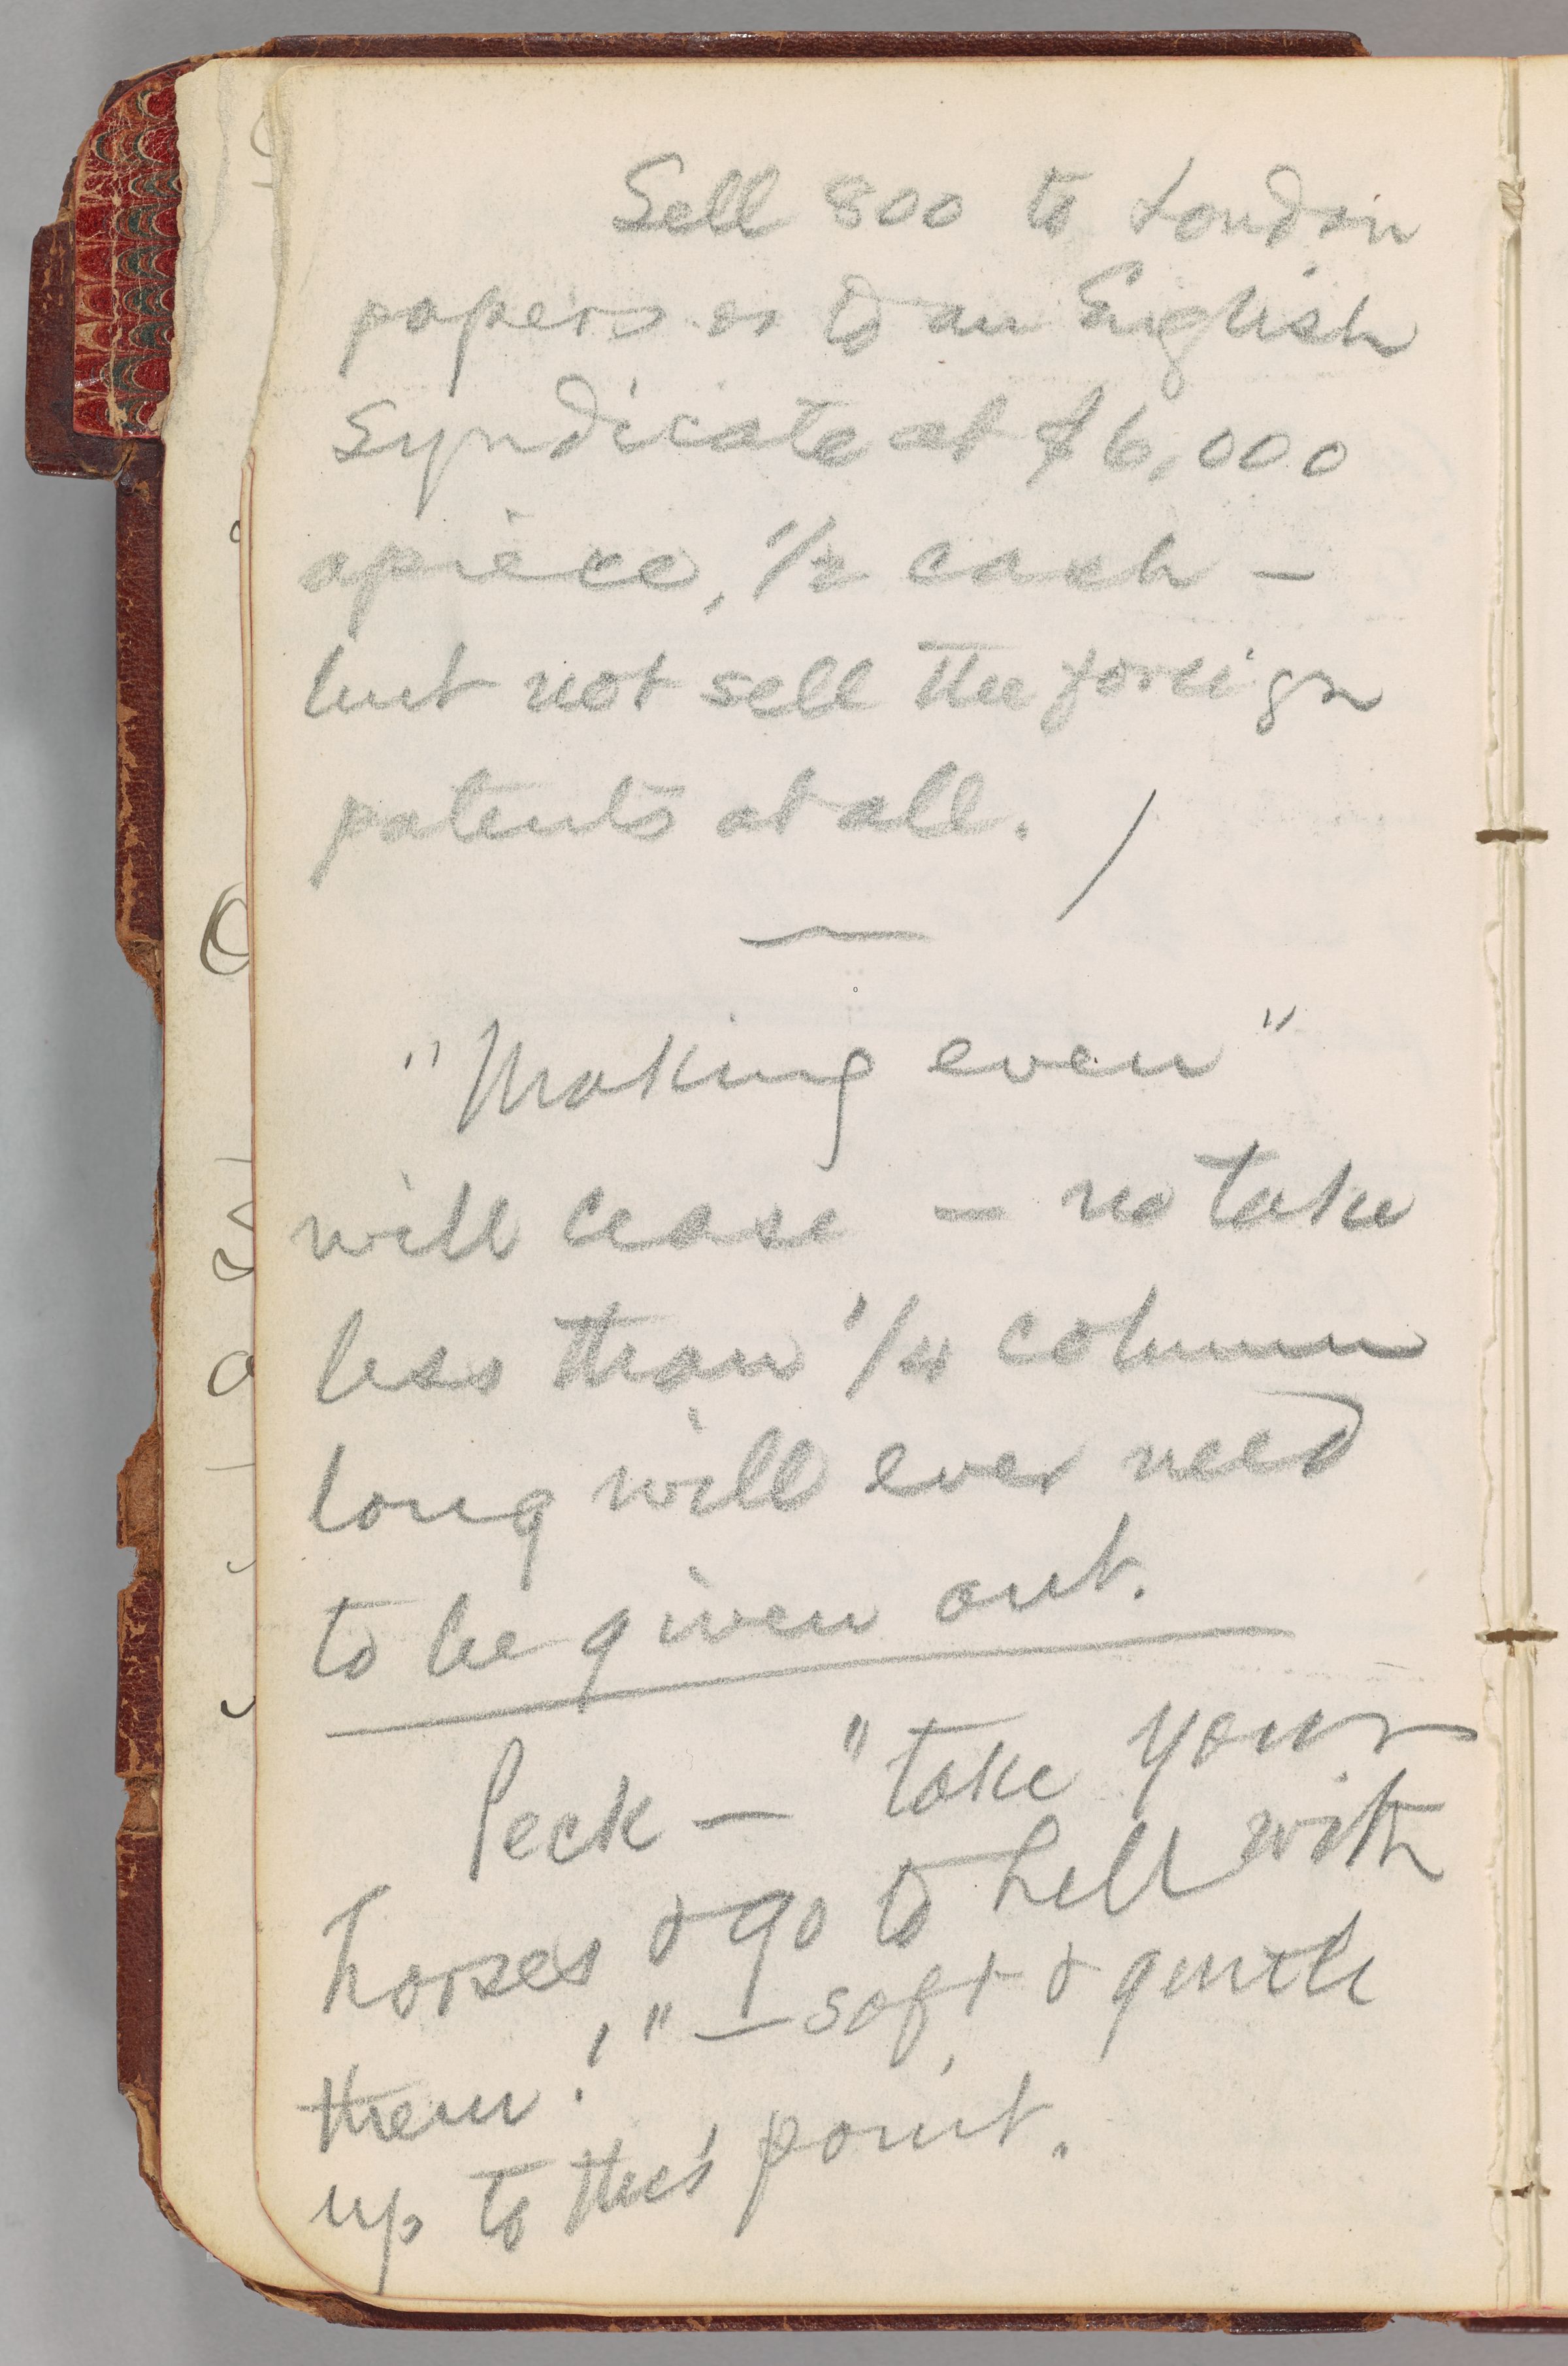 Sell 800 to London
papers or to an English
syndicate at $6,000
apiece, 1/2 cash —
but not sell the foreign
patents at all.
"Making even"
will cease — no take
less than 1/4 column
long will ever need
to be given out.
Peck — "take your
horses & go to hell with
them!" — soft & gentle
up to this point.